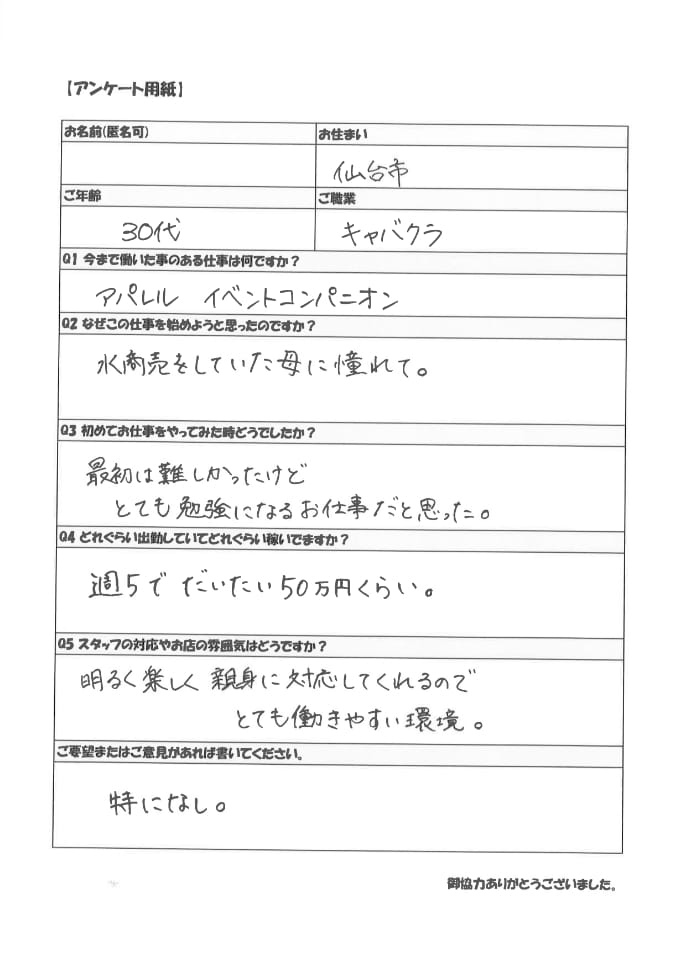 【アンケート用紙】
お名前(匿名可)
お住まい
仙台市
ご年齢
ご職業
30代
キャバクラ
Q1 今まで働いた事のある仕事は何ですか？
アパレル イベントコンパニオン
Q2 なぜこの仕事を始めようと思ったのですか？
水商売をしていた母に憧れて。
Q3 初めてお仕事をやってみた時どうでしたか？
最初は難しかったけど
とても勉強になるお仕事だと思った。
Q4 どれぐらい出勤していてどれぐらい稼いでますか？
週5で だいたい50万円くらい。
Q5 スタッフの対応やお店の雰囲気はどうですか？
明るく楽しく親身に対応してくれるので
とても働きやすい環境。
ご要望またはご意見があれば書いてください。
特になし。
御協力ありがとうございました。